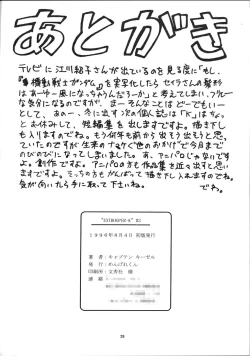 あとがき
テレビに江川紹子さんが出ているのを見る度に「もし、
『機動戦士ガンダム』を実写化したらセイラさんの髪形
はあーゆー風になっちゃうんだろーか」と考えてしまい、フクザツ
な気分になるのですが、まーそんなことはどーでもいー
として、あのー、冬に出す次の個人誌は『K』はちょっ
とお休みして、短編集を出しますですよ。描き下し
も入りますですね。もう何年も前から出そう出そうと思っ
ていたのですが生来の
のびのびになってしまいました。あ、アニパロじゃないです
よ。創作ですよ。アニパロの方も作品集を近々出すと思い
ますですよ。そっちの方もがんばって描き下し入れますですね。
気が向いたら手に取って下さいね。
でわ。
１９９６年８月４日 初版発行
著者：キャプテン キーゼル
発行：めんげれくん
印刷所：
連絡
29